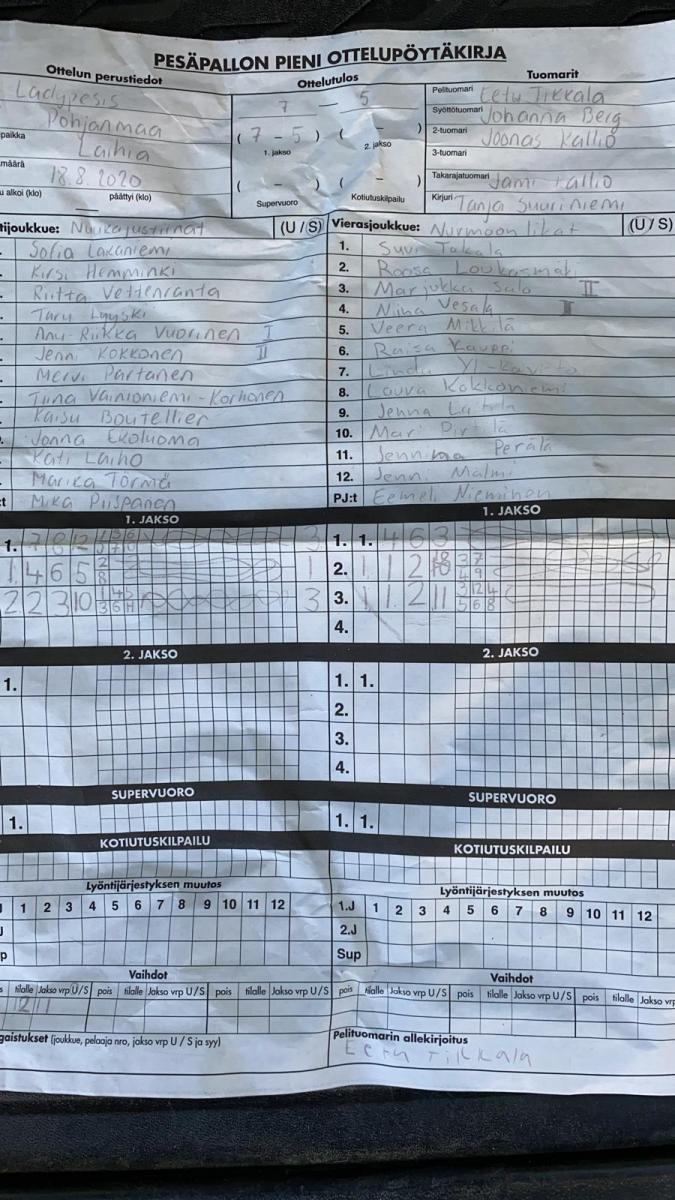 PESÄPALLON PIENI OTTELUPÖYTÄKIRJA
Ottelun perustiedot
Ladypesis
Pohjanmaa
paikka
Laihia
määrä
18.8.2020
u alkoi (klo) päättyi (klo)
Ottelutulos
7 — 5
( 7 - 5 ) ( - )
1. jakso 2. jakso
( - ) ( - )
Supervuoro Kotiutuskilpailu
Tuomarit
Pelituomari Eetu Tikkala
Syöttötuomari Johanna Berg
2-tuomari Joonas Kallio
3-tuomari
Takarajatuomari Jami Kallio
Kirjuri Tanja Suuriniemi
tijoukkue: (U / S)
Sofia Lakaniemi
Kirsi Hemminki
Riitta Vettenranta
Taru
Anu-Riikka Vuorinen I
Jenni Kokkonen II
Mervi Partanen
Tiina Vainioniemi-Korhonen
Kaisu Boutellier
Jonna Ekoluoma
Kati Laiho
Marika Törmä
:t Mika Piispanen
Vierasjoukkue: Nurmoon likat (U / S)
1. Suvi Takala
2. Roosa Loukasmäki
3. Marjukka Salo II
4. Niina Vesala I
5. Veera Mikkilä
6. Raisa Kauppi
7. Linda
8. Laura Kokkoniemi
9. Jenna
10. Mari Pirtilä
11. Jenniina Perälä
12. Jenni Malmi
PJ:t Eemeli Nieminen
1. JAKSO 1. JAKSO
1. 7 8 12 3
1 4 6 5 2 8 1
2 2 3 10 3
1. 1. 4 6 3
2. 1 1 2
3. 1 1 2 11
4.
2. JAKSO 2. JAKSO
1.
1. 1.
2.
3.
4.
SUPERVUORO SUPERVUORO
1. 1. 1.
KOTIUTUSKILPAILU KOTIUTUSKILPAILU
Lyöntijärjestyksen muutos
1 2 3 4 5 6 7 8 9 10 11 12
J
p
Lyöntijärjestyksen muutos
1.J 1 2 3 4 5 6 7 8 9 10 11 12
2.J
Sup
Vaihdot
s tilalle Jakso vrp U/S pois tilalle Jakso vrp U/S pois tilalle Jakso vrp U/S
12 1 1
Vaihdot
pois tilalle Jakso vrp U/S pois tilalle Jakso vrp U/S pois tilalle Jakso vrp
gaistukset (joukkue, pelaaja nro, jakso vrp U / S ja syy)
Pelituomarin allekirjoitus
Eetu Tikkala